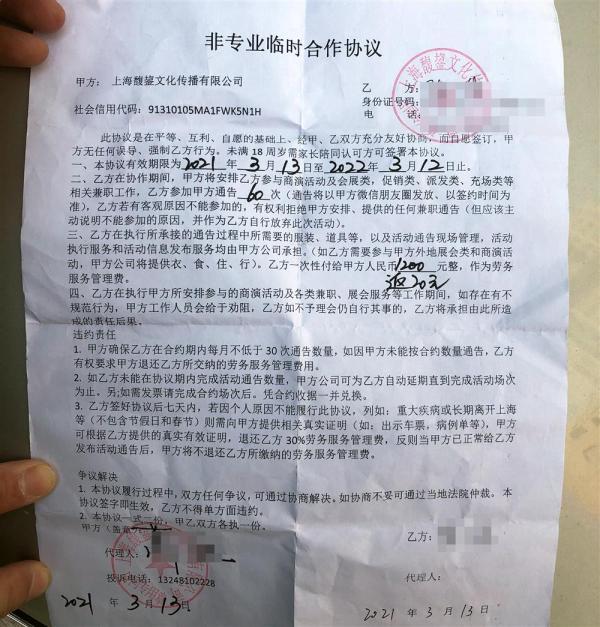 非专业临时合作协议
甲方：上海馥鋆文化传播有限公司
乙 方：
身份证号码：
社会信用代码：91310105MA1FWK5N1H
电 话：
此协议是在平等、互利、自愿的基础上、经甲、乙双方充分友好协商，而自愿签订，甲
方无任何误导、强制乙方行为。未满 18 周岁需家长陪同认可方可签署本协议。
一、本协议有效期限为2021 年 3 月 13 日至 2022 年 3 月 12 日止。
二、乙方在协作期间，甲方将安排乙方参与商演活动及会展类，促销类、派发类、充场类等
相关兼职工作，乙方参加甲方通告 60 次（通告将以甲方微信朋友圈发放、以签约时间为
准），乙方若有客观原因不能参加的，有权利拒绝甲方安排、提供的任何兼职通告（但应该主
动说明不能参加的原因，并作为乙方自行放弃此次活动）。
三、乙方在执行所承接的通告过程中所需要的服装、道具等，以及活动通告现场管理，活动
执行服务和活动信息发布服务均由甲方公司承担。（如乙方需要参与甲方外地展会类和商演活
动，甲方公司将提供衣、食、住、行）。乙方一次性付给甲方人民币1200 元整，作为劳务
服务管理费。
返20元
四、乙方在执行甲方所安排参与的商演活动及各类兼职、展会服务等工作期间，如存在有不
规范行为，甲方工作人员会给于劝阻，乙方如不予理会仍自行其事的，乙方将承担由此所造
成的责任后果。
违约责任
1. 甲方确保乙方在合约期内每月不低于 30 次通告数量，如因甲方未能按合约数量通告，乙方
有权要求甲方退还乙方所交纳的劳务服务管理费用。
2. 如乙方未能在协议期内完成活动通告数量，甲方公司可为乙方自动延期直到完成活动场次
为止。另;如需发票请完成合约场次后。凭合约收据一并兑换。
3. 乙方签好协议后七天内，若因个人原因不能履行此协议，列如：重大疾病或长期离开上海
等（不包含节假日和春节）则需向甲方提供相关真实证明（如：出示车票，病例单等），甲方
可根据乙方提供的真实有效证明，退还乙方 30%劳务服务管理费，反则当甲方已正常给乙方
发布活动通告后，甲方将不退还乙方所缴纳的劳务服务管理费。
争议解决
1. 本协议履行过程中，双方任何争议，可通过协商解决。如协商不妥可通过当地法院仲裁。本
协议签字即生效，乙方不得单方面违约。
2. 本协议一式一份，甲乙双方各执一份。
甲方（盖章）
乙方：
代理人：
代理人：
投诉电话：13248102228
2021 年 3 月 13 日
2021 年 3 月 13 日